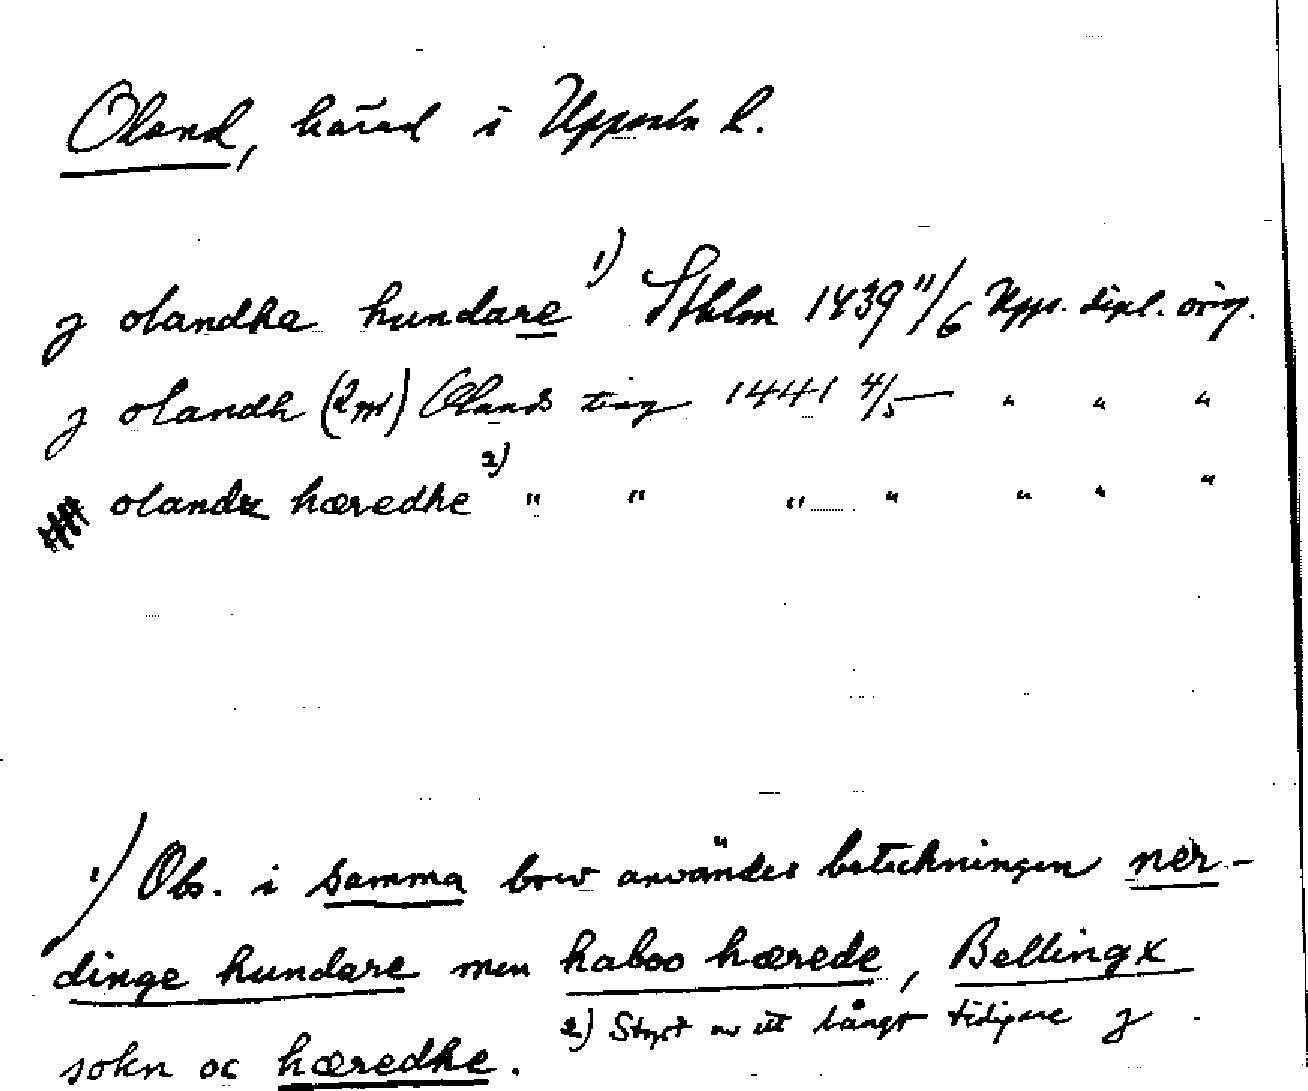 Oland, härad i Uppsala l.
j olandha hundare 1) Sthlm 1439 11/6 Upps. dipl. orig.
j olandh (2 m) Olands ting 1441 4/5 — " " "
olandz hæredhe 2) " " " " " " "
1) Obs. i samma brev användes beteckningen ner-
dinge hundare men haboo hærede, Bellingx
sokn oc hæredhe.
2) Styrt av ett långt tidigare j